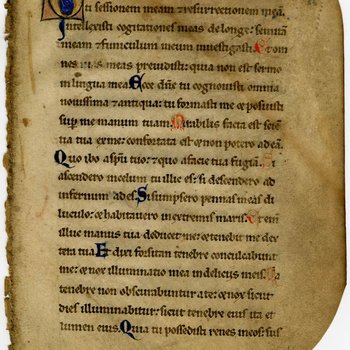 ti sessionem meam & resurrectionem meam.
Intellexisti cogitationes meas de longe: semitā
meam & funiculum meum inuestigasti. Et om
nes uias meas preuidisti: quia non est sermo
in lingua mea. Ecce dn̄e tu cognouisti omnia
nouissima & antiqua: tu formasti me & posuisti
sup me manum tuam. Mirabilis facta est sciē
tia tua ex me: confortata est & non potero ad eā.
Quo ibo a spū tuo: & quo a facie tua fugiā. Si
ascendero in celum tu illic es: si descendero ad
infernum ades. Si sumpsero pennas meas di
luculo: & habitauero in extremis maris. Et enī
illuc manus tua deducet me: & tenebit me dex
tera tua. Et dixi forsitan tenebre conculcabunt
me: & nox illuminatio mea in deliciis meis.
tenebre non obscurabuntur a te: & nox sicut
dies illuminabitur: sicut tenebre eius ita &
lumen eius. Quia tu possedisti renes meos: sus